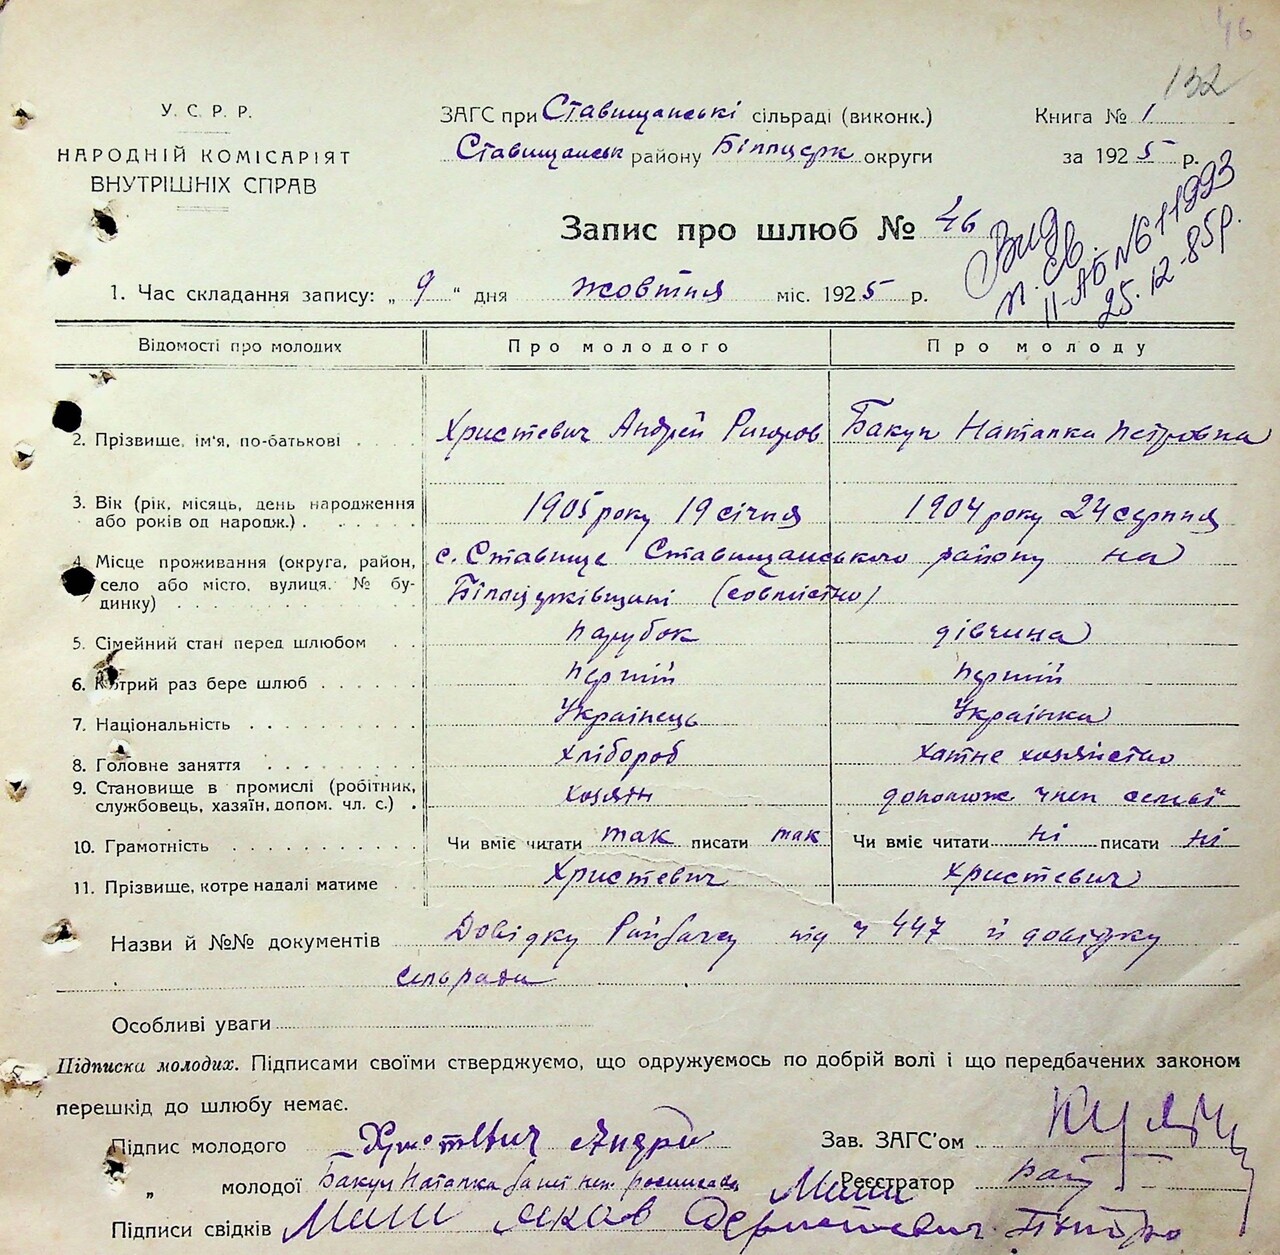 46
132
У. С. Р. Р.
НАРОДНІЙ КОМІСАРІЯТ
ВНУТРІШНІХ СПРАВ
ЗАГС при Ставищанські сільраді (виконк.)
Ставищанськ району Білоцерк округи
Книга № 1
за 1925 р.
Запис про шлюб № 46
Вид.
п. св.
II-АБ №611993
25.12-85р.
1. Час складання запису: „ 9 “ дня жовтня міс. 1925 р.
Відомості про молодих Про молодого Про молоду
2. Прізвище, ім'я, по-батькові Христевич Андрей Ригоров Бакун Наталка Петровна
3. Вік (рік, місяць, день народження або років од народж.) 1905 року 19 січня 1904 року 24 серпня
4. Місце проживання (округа, район, село або місто, вулиця. № будинку) с. Ставище Ставищанського району на
Білоцерківщині (совмістно)
5. Сімейний стан перед шлюбом парубок дівчина
6. Котрий раз бере шлюб перший перший
7. Національність Українець Українка
8. Головне заняття хлібороб хатне хозяйство
9. Становище в промислі (робітник, службовець, хазяїн, допом. чл. с.) хозяїн допомож член семьї
10. Грамотність Чи вміє читати так писати так Чи вміє читати ні писати ні
11. Прізвище, котре надалі матиме Христевич Христевич
Назви й №№ документів Довідку від ч 447 й довідку
сельради
Особливі уваги
Підписка молодих. Підписами своїми стверджуємо, що одружуємось по добрій волі і що передбачених законом
перешкід до шлюбу немає.
Підпис молодого Христевич Андрій Зав. ЗАГС'ом
„ молодої Бакун Наталка Реєстратор
Підписи свідків